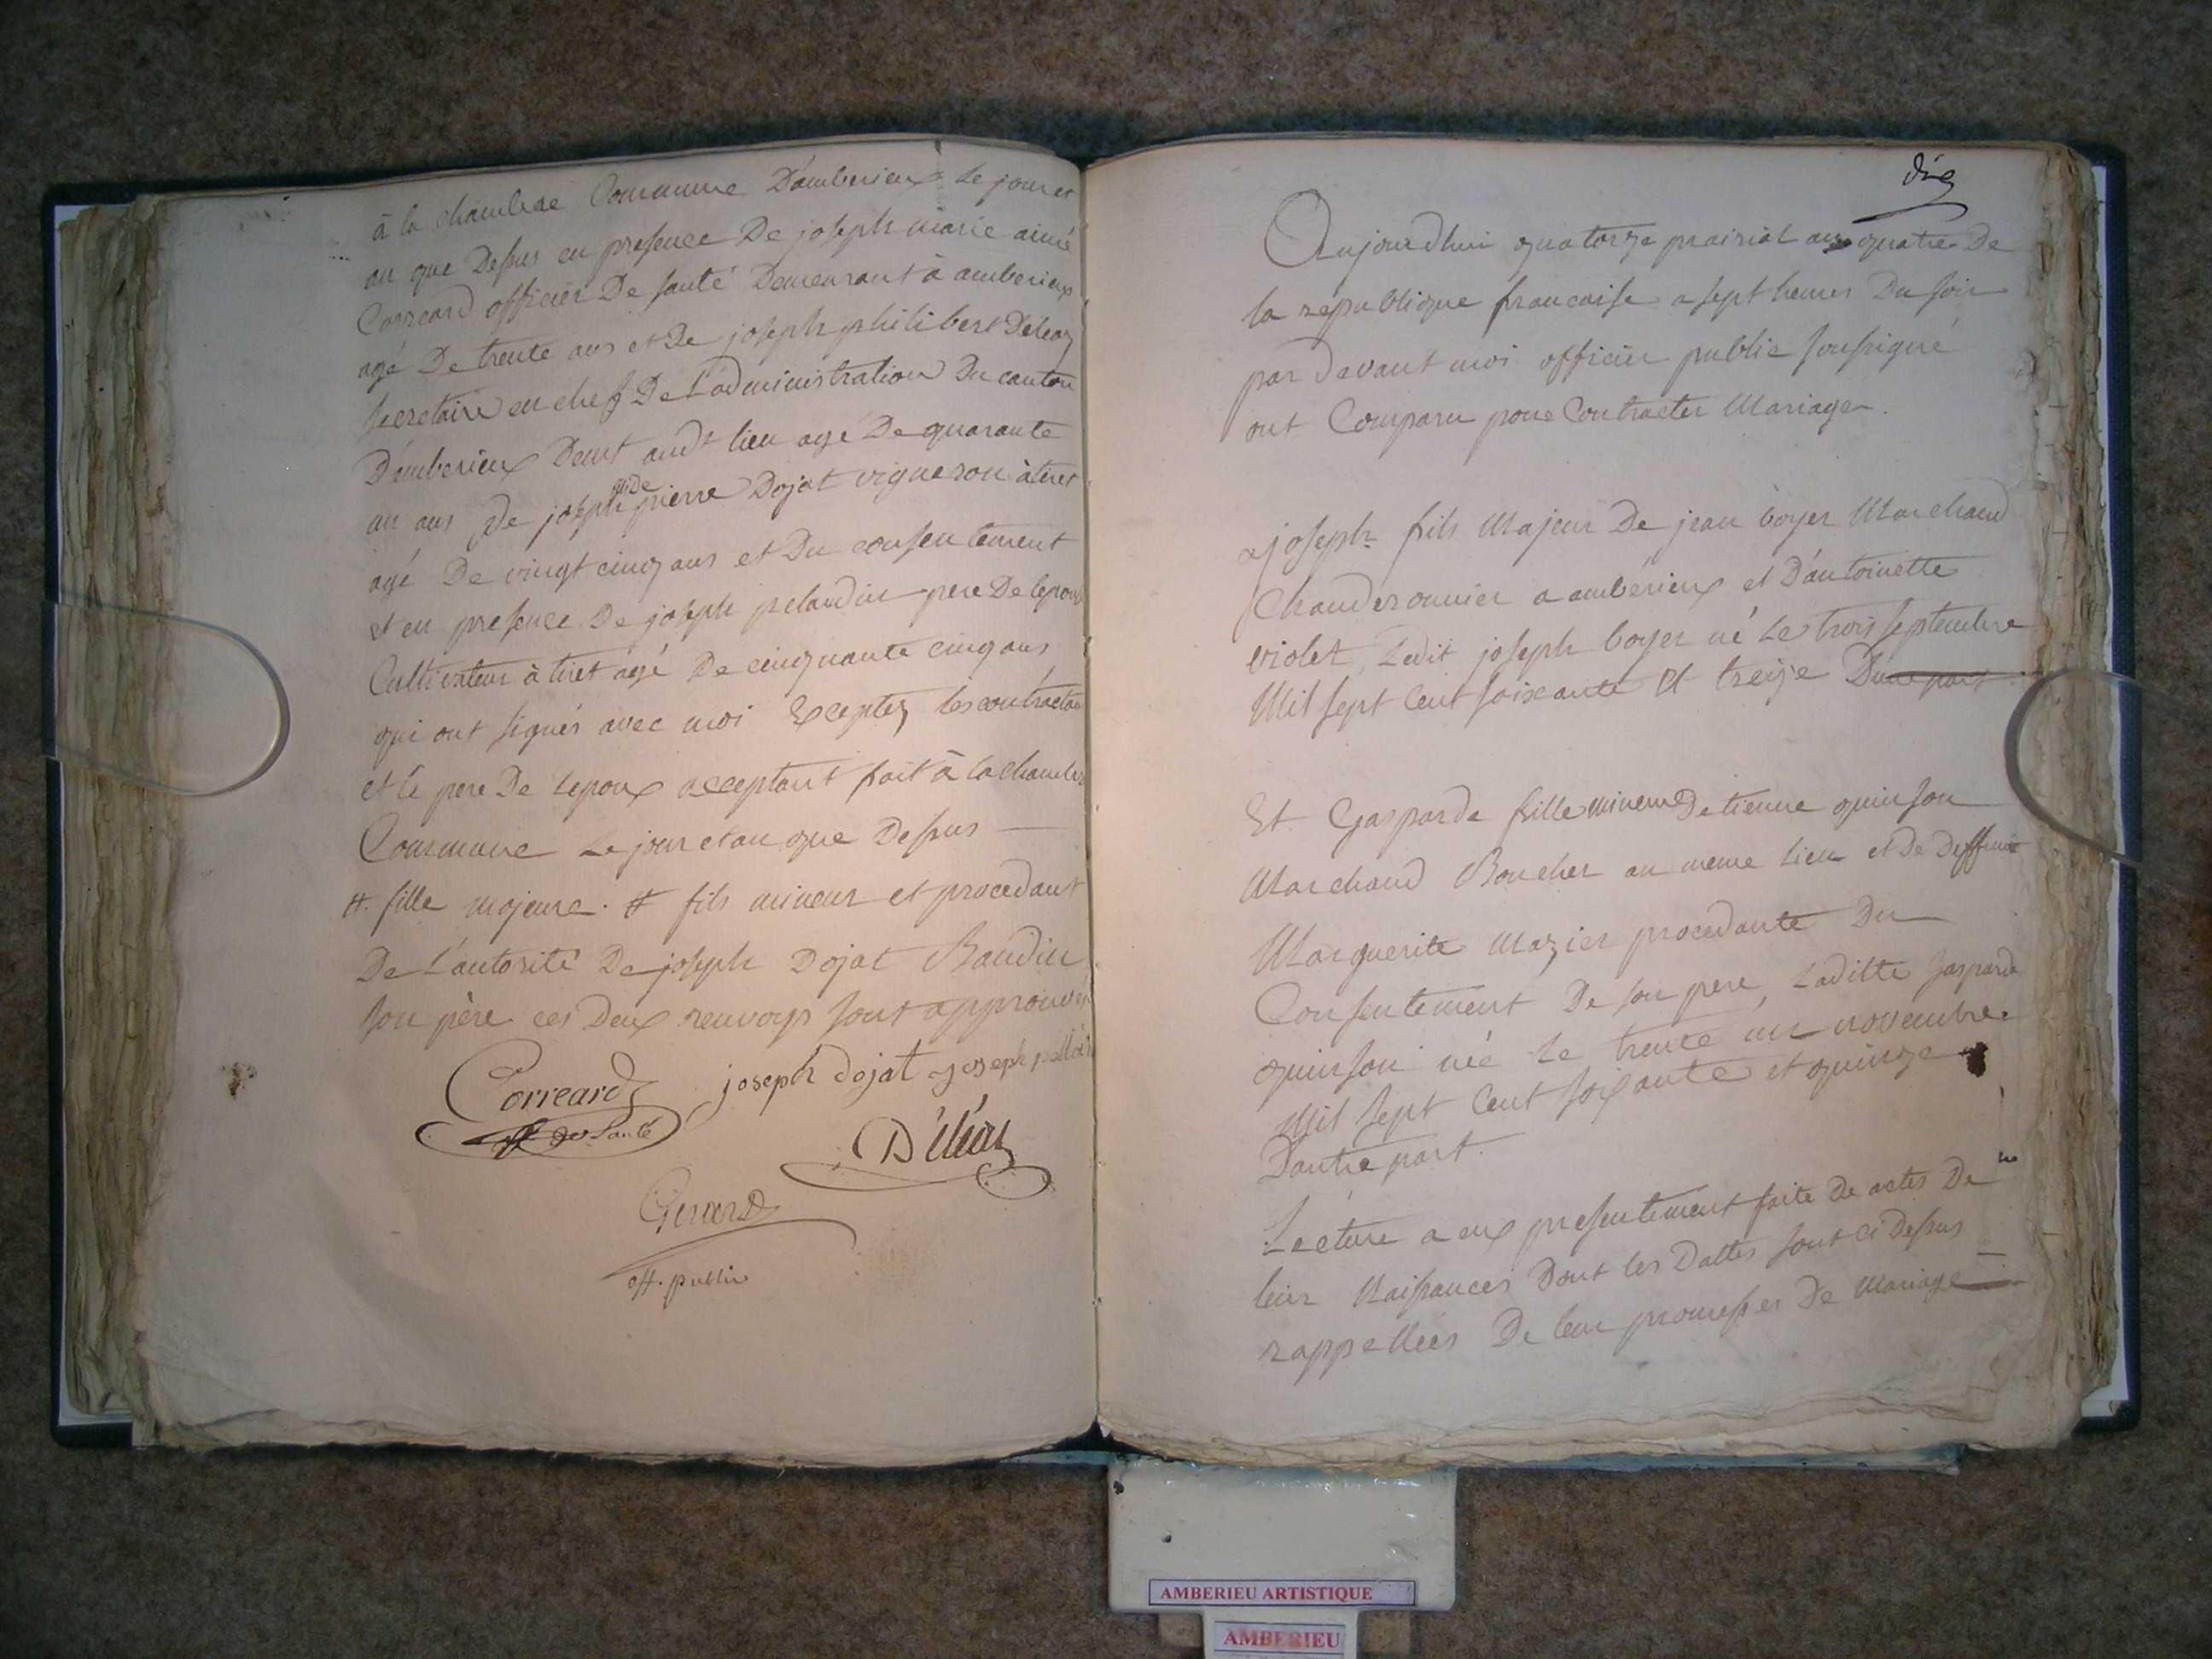 à la chambre Commune D'amberieux Le jour et
an que Dessus en presence De joseph marie aimé
Correard officier De santé Demeurant à amberieux
agé De trente ans et De joseph philibert Deleaz
secretaire en chef De L'administration Du canton
D'amberieux Demt audt lieu agé De quarante
un ans De joseph pierre Dojat vigneron à tiret
agé De vingt cinq ans et Du consentement
et en presence De joseph pelandin pere De lepouse
Cultivateur à tiret agé De cinquante cinq ans
qui ont signés avec moi Exceptez les contractans
et le pere De Lepoux acceptant fait à la chambre
Commune Le jour et an que Dessus —
#. fille majeure. # fils mineur et procedant
De L'autorité De joseph Dojat Baudin
son père ces Deux renvoys sont approuvés
Correard joseph dojat joseph
off. de Santé
Gerard
off. public
dix
Aujourdhui quatorze prairial an quatre De
la republique francaise a sept heures Du soir
par devant moi officier public soussigné
ont Comparu pour Contracter Mariage.
joseph fils Majeur De jean boyer Marchand
Chauderonnier a ambérieux et D'antoinette
violet, Ledit joseph boyer né Le trois septembre
Mil sept Cent soixante et treize D'une part
Et Gasparde fille mineure Detienne quinson
Marchand Boucher au meme lieu et De Deffunte
Marguerite Mazier procedante Du
Consentement De son pere, Laditte gasparde
quinson née le trente un novembre
Mil sept Cent soixante et quinze
D'autre part.
Lecture a eux presentement faite de actes De
leur Naissances Dont les Dattes sont ci Dessus
rappellées De leur promesses De Mariage —
AMBERIEU ARTISTIQUE
AMBERIEU